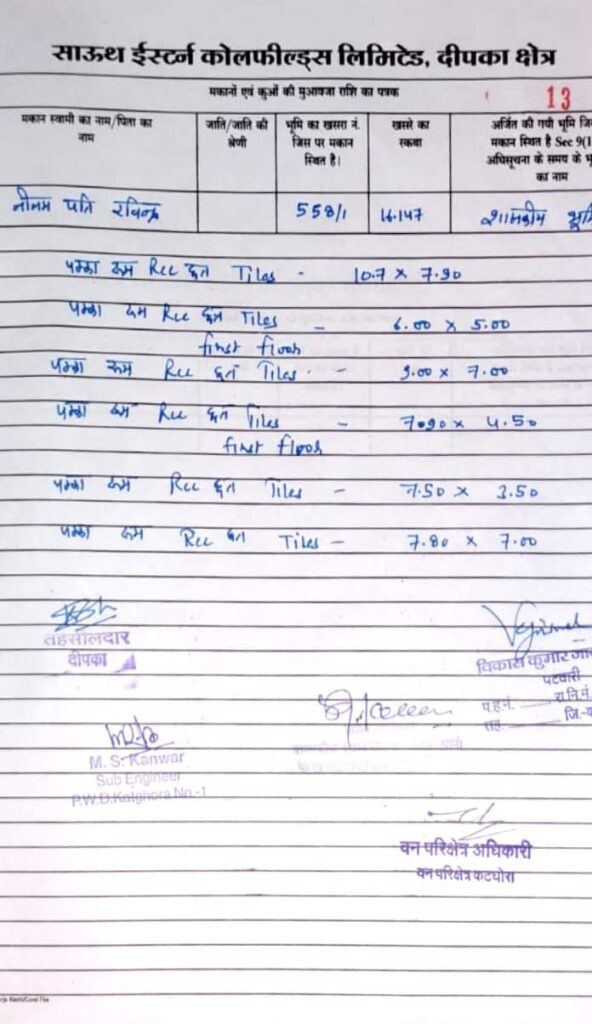 साऊथ ईस्टर्न कोलफील्ड्स लिमिटेड, दीपका क्षेत्र
मकानों एवं कुओं की मुआवजा राशि का पत्रक
13
मकान स्वामी का नाम/पिता का नाम
जाति/जाति की श्रेणी
भूमि का खसरा नं. जिस पर मकान स्थित है।
खसरे का रकबा
अर्जित की गयी भूमि मकान स्थित है Sec 9(1 अधिसूचना के समय के का नाम
नीलम पति रविन्द्र 558/1 16.147 शासकीय
पक्का रूम Rcc छत Tiles - 10.7 x 7.90
पक्का रूम Rcc छत Tiles - 6.00 x 5.00
first floor
पक्का रूम Rcc छत Tiles - 9.00 x 7.00
पक्का रूम Rcc छत Tiles - 7.90 x 4.50
first floor
पक्का रूम Rcc छत Tiles - 7.50 x 3.50
पक्का रूम Rcc छत Tiles - 7.80 x 7.00
तहसीलदार
दीपका
विकास कुमार
पटवारी
प.ह.नं. ......... रा.नि.नं.
तह. ......... जि.
M. S. Kanwar
Sub Engineer
P.W.D.Katghora No.-1
वन परिक्षेत्र अधिकारी
वन परिक्षेत्र कटघोरा